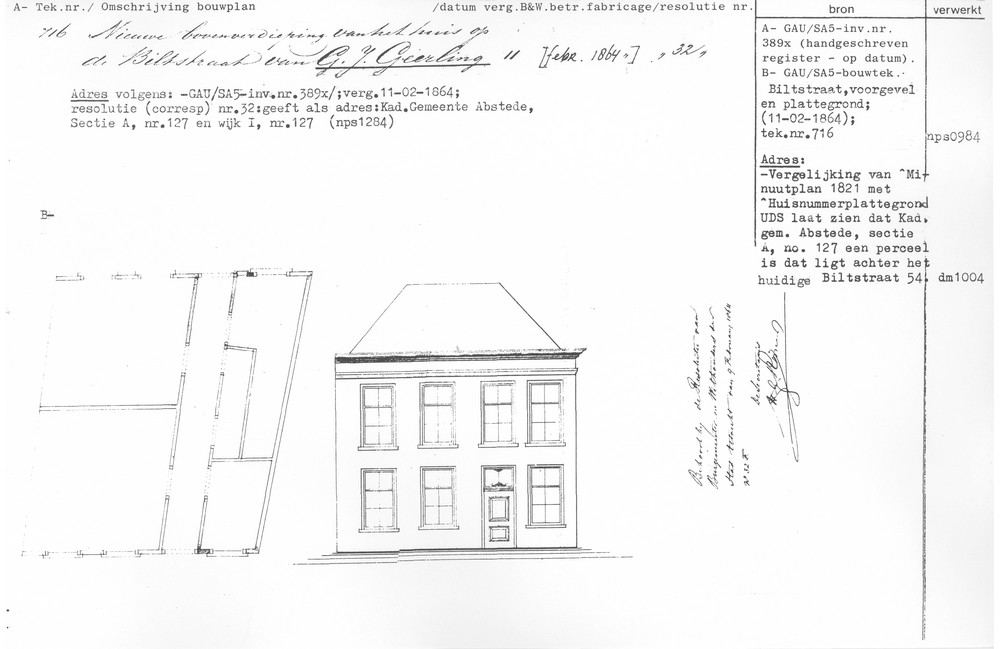 A- Tek.nr./ Omschrijving bouwplan /datum verg.B&W.betr.fabricage/resolutie nr.
716 Nieuwe bovenverdiering van het huis op
de Biltstraat van G. J. Gierling 11 [febr. 1864 "] "32"
Adres volgens: -GAU/SA5-inv.nr.389x/;verg.11-02-1864;
resolutie (corresp) nr.32:geeft als adres:Kad.Gemeente Abstede,
Sectie A, nr.127 en wijk I, nr.127 (nps1284)
B-
bron
A- GAU/SA5-inv.nr.
389x (handgeschreven
register - op datum).
B- GAU/SA5-bouwtek.
Biltstraat,voorgevel
en plattegrond;
(11-02-1864);
tek.nr.716
Adres:
-Vergelijking van ^Mi-
nuutplan 1821 met
^Huisnummerplattegrond
UDS laat zien dat Kad.
gem. Abstede, sectie
A, no. 127 een perceel
is dat ligt achter het
huidige Biltstraat 54.
verwerkt
nps0984
dm1004
Behoord bij de Resolutie van
Burgemeester en Wethouders der
Stad Utrecht van 9 februarij 1864
No 32
de Secretaris